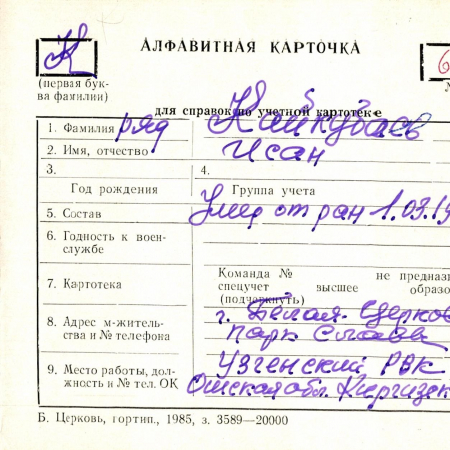 К
АЛФАВИТНАЯ КАРТОЧКА
6
(первая бук-
ва фамилии)
для справок по учетной картотеке
1. Фамилия ряд Кайкубаев
2. Имя, отчество Исан
3.
4.
Год рождения
Группа учета
5. Состав Умер от ран 1.03.19
6. Годность к воен-
службе
7. Картотека
Команда № не предназ
спецучет высшее образо
(подчеркнуть)
8. Адрес м-житель-
ства и № телефона
г. Белая-Церков
парк Славы
9. Место работы, дол-
жность и № тел. ОК
Узгенский РВК
Ошская обл. Киргизск
Б. Церковь, гортип., 1985, з. 3589—20000